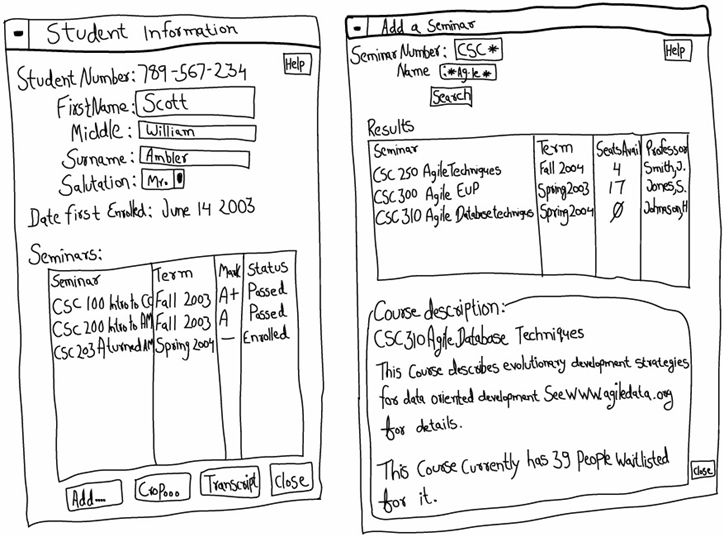 Student Information
Help
Student Number: 789-567-234
First Name: Scott
Middle: William
Surname: Ambler
Salutation: Mr.
Date First Enrolled: June 14 2003
Seminars:
Seminar Term Mark Status
CSC 100 Intro to CC Fall 2003 A+ Passed
CSC 200 Intro to AM Fall 2003 A Passed
CSC 203 A turned AM Spring 2004 — Enrolled
Add.... Crop... Transcript Close
Add a Seminar
Seminar Number: CSC*
Help
Name :*Agile*
Search
Results
Seminar Term Seats Avail Professor
CSC 250 Agile Techniques Fall 2004 4 Smith, J.
CSC 300 Agile EUP Spring 2003 17 Jones, S.
CSC 310 Agile Database techniques Spring 2004 Ø Johnson, H
Course description:
CSC 310 Agile Database Techniques
This Course describes evolutionary development strategies
for data oriented development See WWW.agiledata.org
for details.
This Course Currently has 39 People Waitlisted
for it.
Close